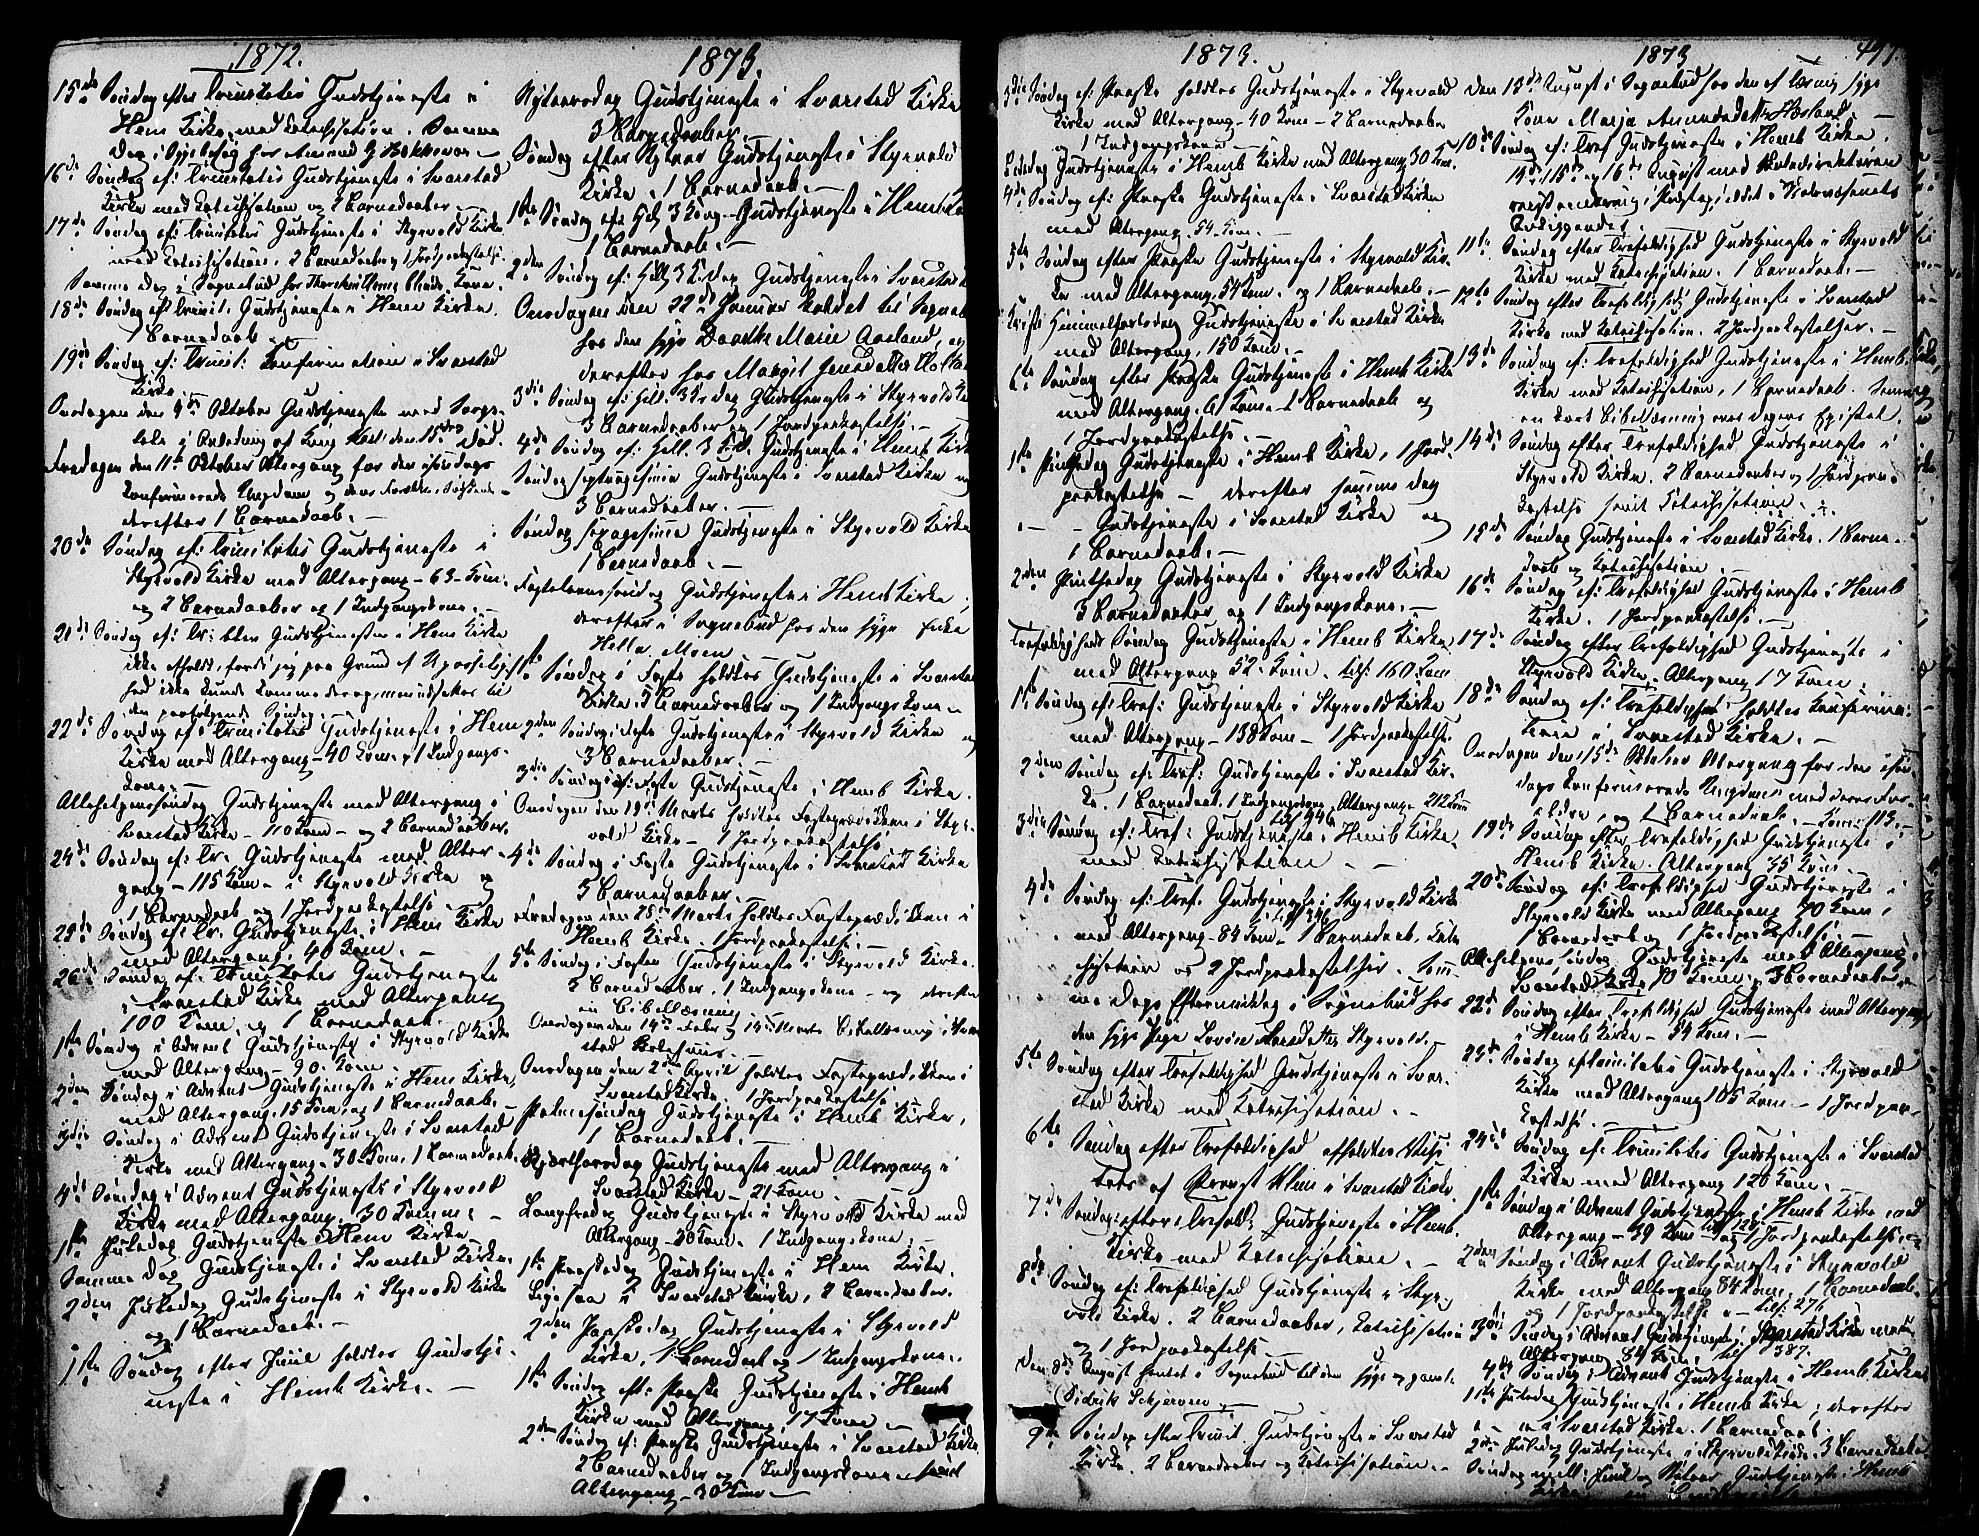 1872.
15de Søndag efter Trinitatis Gudstjeneste i
Hem Kirke, med Catechisation. Samme
Dag i
16de Søndag ef: Trinitatis Gudstjeneste i Svarstad
Kirke med Catechisation og 2 Barnedaaber.
17de Søndag ef: Trinitatis Gudstjeneste i Styrvold Kirke
med Catechisation. 2 Barnedaaber og 1 Jordpaakastelse.
Samme Dag i Sognebud hos Kone.
18de Søndag ef: Trinit: Gudstjeneste i Hem Kirke.
1 Barnedaab. –
19de Søndag ef: Trinit: Confirmation i Svarstad
Kirke.
Onsdagen den 9de Oktober Gudstjeneste med Sorge-
tale i Anledning af Kong Karl den 15des Død.
Fredagen den 11te Oktober Altergang for den i Søndags
konfirmerede Ungdom og deres Forældre,
derefter 1 Barnedaab. –
20de Søndag ef: Trinitatis Gudstjeneste i
Styrvold Kirke med Altergang – 63 – Kom.
og 2 Barnedaaber og 1 Indgangskone. –
21de Søndag ef: Tr: blev Gudstjenesten i Hem Kirke
ikke afholdt, fordi jeg paa Grund af Upasselig-
hed ikke kunde komme derop, men udsattes til
den paafølgende Søndag.
22de Søndag ef: Trinitatis Gudstjeneste i Hem
Kirke med Altergang – 40 Kom. 1 Indgangs-
kone. –
Allehelgenssøndag Gudstjeneste med Altergang i
Svarstad Kirke – 110 Kom – og 2 Barnedaaber.
24de Søndag ef: Tr. Gudstjeneste med Alter-
gang – 115 Kom – i Styrvold Kirke og
1 Barnedaab og 1 Jordpaakastelse. –
25de Søndag ef: Tr. Gudstjeneste i Hem Kirke
med Altergang. 40 Kom. –
26de Søndag ef: Trinitatis Gudstjeneste
i Svarstad Kirke med Altergang
100 Kom. og 1 Barnedaab.
1ste Søndag i Advent Gudstjeneste i Styrvold Kirke
med Altergang – 90. Kom. –
2den Søndag i Advent Gudstjeneste i Hem Kirke,
med Altergang. 15 Kom, og 1 Barnedaab. –
3die Søndag i Advent Gudstjeneste i Svarstad
Kirke med Altergang – 30 – Kom. 1 Barnedaab.
4de Søndag i Advent Gudstjeneste i Styrvold
Kirke med Altergang. 30 Komm: –
1ste Juledag Gudstjeneste i Hem Kirke
Samme Dag Gudstjeneste i Svarstad Kirke.
2den Juledag Gudstjeneste i Styrvold Kirke
og 1 Barnedaab. –
1ste Søndag efter Juul holdtes Gudstje-
neste i Hemb Kirke. –
1873.
Nytaarsdag Gudstjeneste i Svarstad Kirke
3 Barnedaaber. –
Søndag efter Nytaar Gudstjeneste i Styrvold
Kirke. 1 Barnedaab. –
1ste Søndag ef: Hel. 3 Kong. Gudstjeneste i Hemb
1 Barnedaab. –
2den Søndag ef: Hell. 3 K.dag Gudstjeneste i Svarstad
Onsdagen den 22de Januar kaldet til Sogneb
hos den syge Dorthe Marie Aasland, og
derefter hos Margit Jensdatter
3die Søndag ef: Hell. 3 K. dag Gudstjeneste i Styrvold
3 Barnedaaber og 1 Jordpaakastelse. –
4de Søndag ef: Hell. 3 K.d. Gudstjeneste i Hemb Kirke
Søndag septuagesima Gudstjeneste i Svarstad Kirke og
3 Barnedaaber. –
Søndag sexagesima Gudstjeneste i Styrvold Kirke
1 Barnedaab. –
Fastelavnssøndag Gudstjeneste i Hemb Kirke,
derefter i Sognebud hos den syge Enke
Helle Moen. –
1ste Søndag i Faste holdtes Gudstjeneste i Svarstad
Kirke. 5 Barnedaaber og 1 Indgangskone –
2den Søndag i Faste Gudstjeneste i Styrvold Kirke og
3 Barnedaaber. –
3die Søndag i Faste Gudstjeneste i Hemb Kirke.
Onsdagen den 19de Marts holdtes Fasteprædiken i Styr-
vold Kirke – 1 Jordpaakastelse
4de Søndag i Faste Gudstjeneste i Svarstad Kirke
3 Barnedaaber. –
Fredagen den 28de Marts holdtes Fasteprædiken i
Hemb Kirke. 1 Jordpaakastelse. –
5te Søndag i Fasten Gudstjeneste i Styrvold Kirke.
3 Barnedaaber. 1 Indgangskone – og derefter
en Bibellæsning
Onsdagen den 14de Febr og Marts Bibellæsning i Svar-
stad Skolehuus. –
Onsdagen den 2den April holdtes Fasteprædiken i
Svarstad Kirke. 1 Jordpaakastelse
Palmesøndag Gudstjeneste i Hemb Kirke,
1 Barnedaab. –
Skjærthorsdag Gudstjeneste med Altergang i
Svarstad Kirke – 21 Kom.
Langfredag Gudstjeneste i Styrvold Kirke med
Altergang – 30 Kom. 1 Indgangskone. –
1ste Paaskedag Gudstjeneste i Hem Kirke.
Ligesaa i Svarstad Kirke, 2 Barnedaaber.
2den Paaskedag Gudstjeneste i Styrvold
Kirke, 1 Barnedaab og 1 Indgangskone. –
1ste Søndag eft: Paaske Gudstjeneste i Hemb
Kirke med Altergang 17 Kom –
2den Søndag ef: Paaske Gudstjeneste i Svarstad Kirke
2 Barnedaaber og 1 Indgangskone med
Altergang – 30 Kom. –
1873.
3die Søndag ef: Paaske holdtes Gudstjeneste i Styrvold
Kirke med Altergang – 40 Kom – 2 Barnedaaber
og 1 Indgangskone. –
Bededag Gudstjeneste i Hemb Kirke med Altergang 30 Kom.
4de Søndag ef: Paaske Gudstjeneste i Svarstad Kirke
med Altergang – 54 Kom. –
5te Søndag efter Paaske Gudstjeneste i Styrvold Kir-
ke med Altergang. 54 Kom. og 1 Barnedaab. –
Kristi Himmelfartsdag Gudstjeneste i Svarstad Kirke
med Altergang. 150 Kom. –
6te Søndag efter Paaske Gudstjeneste i Hemb Kirke
med Altergang. Kom – 1 Barnedaab og
1 Jordpaakastelse. –
1ste Pintsedag Gudstjeneste i Hemb Kirke, 1 Jord-
paakastelse – derefter samme Dag
Gudstjeneste i Svarstad Kirke og
1 Barnedaab. –
2den Pintsedag Gudstjeneste i Styrvold Kirke
3 Barnedaaber og 1 Indgangskone. –
Trefoldigheds Søndag Gudstjeneste i Hemb Kirke
med Altergang 52 – Kom. tils: 160 Kom
1ste Søndag ef: Tref: Gudstjeneste i Styrvold Kirke
med Altergang – 138 Kom – 1 Jordpaakastelse.
2den Søndag ef: Tref: Gudstjeneste i Svarstad Kir-
ke. 1 Barnedaab. 1 Indgangskone, Altergang 212 Kom
3die Søndag ef: Tref: Gudstjeneste i Hemb Kirke
med Catechisation –
4de Søndag ef: Tref. Gudstjeneste i Styrvold Kirke
med Altergang – 84 Kom – 1 Barnedaab, Cate-
chisation og 2 Jordpaakastelser. Sam-
me Dags Eftermiddag i Sognebud hos
den syge Pige Styrvold. –
5te Søndag efter Trefoldighed Gudstjeneste i Svar-
stad Kirke med Catechisation. –
6te Søndag efter Trefoldighed afholdtes Visi-
tats af Provst i Svarstad Kirke.
7de Søndag efter Trefold: Gudstjeneste i Hemb
Kirke med Catechisation. –
8de Søndag ef: Trefoldighed Gudstjeneste i Styr-
vold Kirke. 2 Barnedaaber, Catechisation
og 1 Jordpaakastelse. –
Den 8de August hentet i Sognebud til den syge og gamle
Didrik Schjerven. –
9de Søndag efter Trinit. Gudstjeneste i Svarstad
Kirke. 2 Barnedaaber og Catechisation. –
1873 497.
Den 13de August i Sognebud hos den af syge
Kone Maria
10de Søndag ef: Tref Gudstjeneste i Hemb Kirke.
14de, 15de og 16de August med Skoledirektøren
11te Søndag efter Trefoldighed Gudstjeneste i Styrvold
Kirke med Catechisation. 1 Barnedaab. –
12te Søndag efter Trefoldighed Gudstjeneste i Svarstad
Kirke med Catechisation. 2 Jordpaakastelser. –
13de Søndag ef: Trefoldighed Gudstjeneste i Hemb
Kirke med Catechisation, 1 Barnedaab. Samt
en kort Bibellæsning over dagens Epistel.
14de Søndag efter Trefoldighed Gudstjeneste i
Styrvold Kirke. 2 Barnedaaber og 1 Jordpaa-
kastelse samt Catechisation. –
15de Søndag Gudstjeneste i Svarstad Kirke. 1 Barne-
daab og Catechisation. –
16de Søndag ef: Trefoldighed Gudstjeneste i Hemb
Kirke. 1 Jordpaakastelse. –
17de Søndag efter Trefoldighed Gudstjeneste i
Styrvold Kirke. Altergang 17 Kom.
18de Søndag ef: Trefoldighed holdtes Konfirma-
tion i Svarstad Kirke. –
Onsdagen den 15de Oktober Altergang for den i Søn-
dags konfirmerede Ungdom med deres For-
ældre, og 1 Barnedaab. – Kom: 113. –
19de Søndag efter Trefoldighed Gudstjeneste i
Hemb Kirke. Altergang 35 Kom. –
20de Søndag ef: Trefoldighed Gudstjeneste i
Styrvold Kirke med Altergang 70 Kom,
1 Barnedaab og 1 Jordpaakastelse
Allehelgens Søndag Gudstjeneste med Altergang
Svarstad Kirke 70 Kom. 3 Barnedaaber.
22de Søndag efter Trefoldighed Gudstjeneste med Altergang
i Hemb Kirke – 54 Kom. –
23de Søndag ef Trinitatis Gudstjeneste i Styrvold
Kirke med Altergang 105 Kom – 1 Jordpaa-
kastelse.
24de Søndag ef: Trinitatis Gudstjeneste i Svarstad
Kirke med Altergang 120 Kom. –
1ste Søndag i Advent Gudstjeneste i Hemb Kirke med
Altergang – 39 Kom og 1 Jordpaakastelse
2den Søndag i Advent Gudstjeneste i Styrvold
Kirke med Altergang 84 Kom. 1 Barnedaab
og 1 Jordpaakastelse – tils: 276
3die Søndag i Advent Gudstjeneste i Svarstad Kirke med
Altergang 84 Kom. tils 387.
4de Søndag i Advent Gudstjeneste i Hemb Kirke
1ste Juledag Gudstjeneste i Hemb Kirke, derefter
i Svarstad Kirke. 1 Barnedaab.
2den Juledag Gudstjeneste i Styrvold Kirke. 3 Barnedaaber
Søndag mell: Juul og Nytaar Gudstjeneste i Hemb